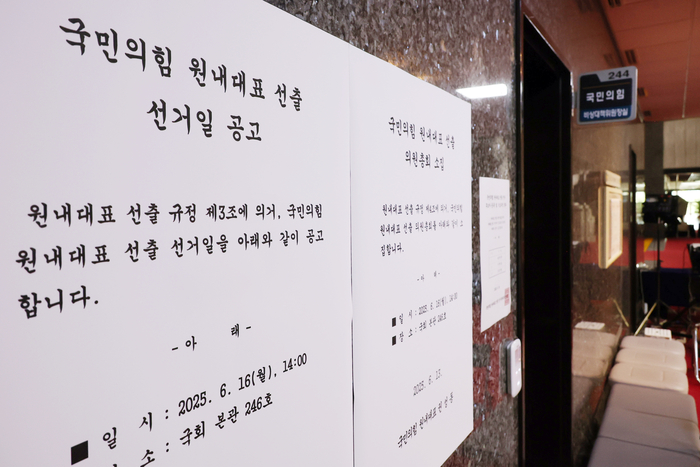 국민의힘 원내대표 선출
선거일 공고
원내대표 선출 규정 제3조에 의거, 국민의힘
원내대표 선출 선거일을 아래와 같이 공고
합니다.
- 아 래 -
■ 일 시 : 2025. 6. 16(월), 14:00
소 : 국회 본관 246호
국민의힘 원내대표 선출
의원총회 소집
원내대표 선출 규정 제4조에 의거, 국민의힘
원내대표 선출 의원총회를 아래와 같이 소
집합니다.
- 아 래 -
■ 일 시 : 2025. 6. 16(월), 14:00
■ 장 소 : 국회 본관 246호
2025. 6. 13.
국민의힘 원내대표 권성동
244
국민의힘
비상대책위원장실